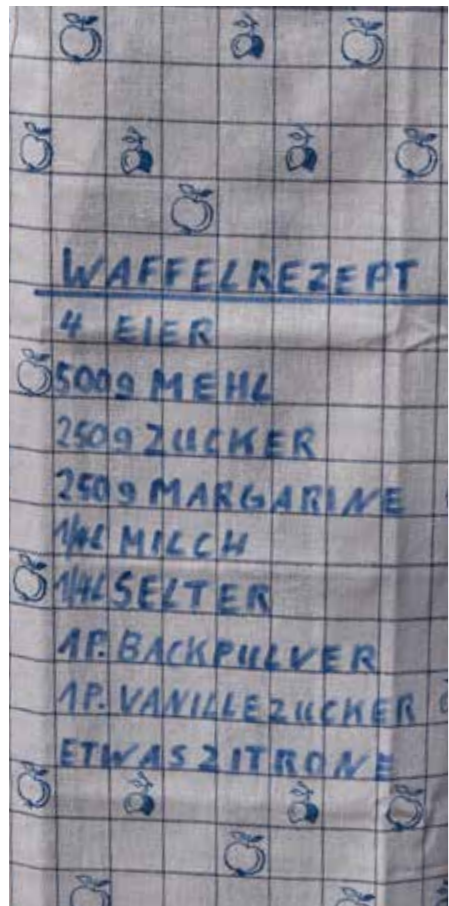 WAFFELREZEPT
4 EIER
500g MEHL
250g ZUCKER
250g MARGARINE
1/4L MILCH
1/4L SELTER
1P. BACKPULVER
1P. VANILLEZUCKER
ETWAS ZITRONE